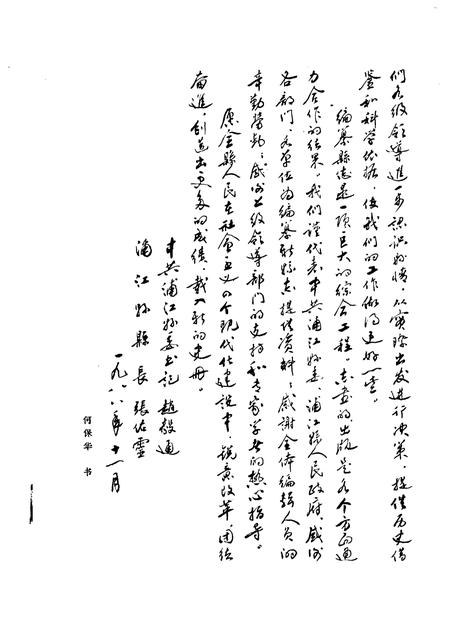 们各级领导进一步认识县情，从实际出发进行决策，提供历史借
鉴和科学依据，使我们的工作做得更好一些。
编纂县志是一项巨大的综合工程。志书的出版是各个方面通
力合作的结果。我们谨代表中共浦江县委、浦江县人民政府，感谢
各部门、各单位为编纂新县志提供资料；感谢全体编辑人员的
辛勤劳动；感谢上级领导部门的支持和专家学者的热心指导。
愿全縣人民在社会主义四个现代化建设中，锐意改革，团结
奋進，创造出更多的成绩，载入新的史册。
中共浦江县委书记 趙毅通
浦江县縣長 張佑靈
一九八八年十一月
何保华 书